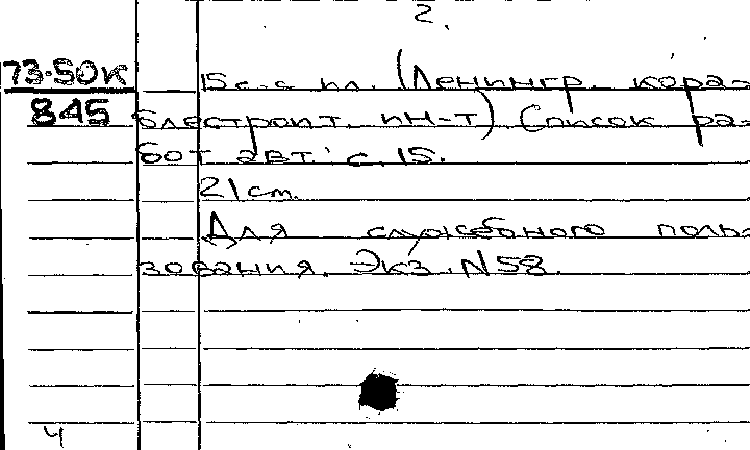 2.
73-50К 15 с. с ил. (Ленингр. кораб-
845 блестроит. ин-т) Список ра-
бот авт.: с. 15.
21 см.
Для служебного поль-
зования. Экз. N58.
4